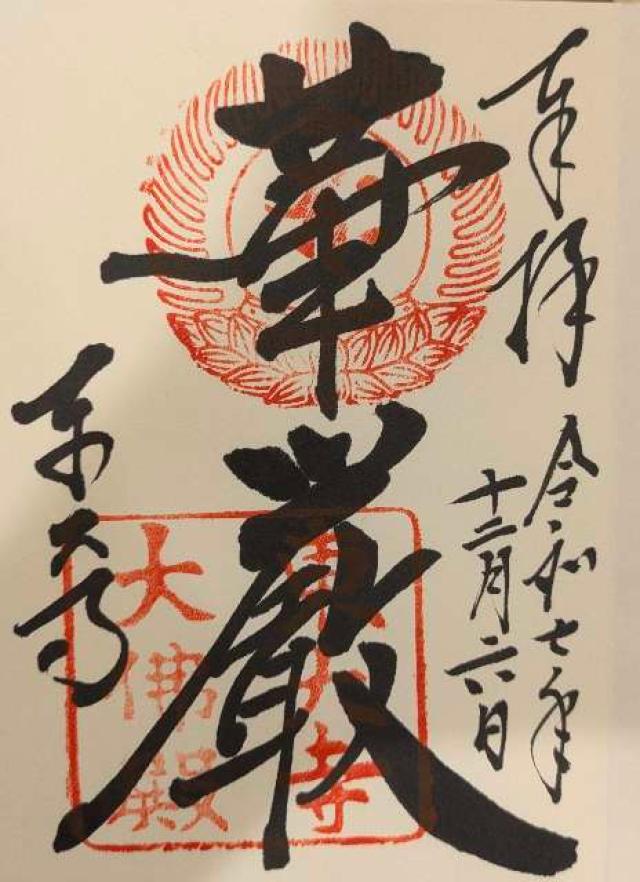 奉拝
令和七年
十二月六日
華厳
東大寺
東大寺
大佛殿